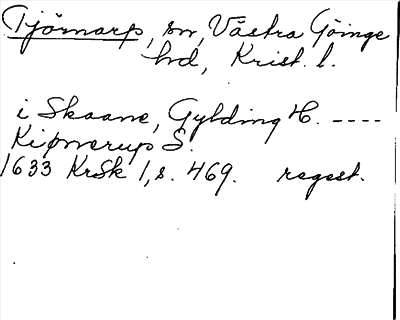 Tjörnarp, sn, Västra Göinge
hd, Krist. l.
i Skaane, Gylding H. ----
Kiørnerup S.
1633 KrSk 1, s. 469. regest.